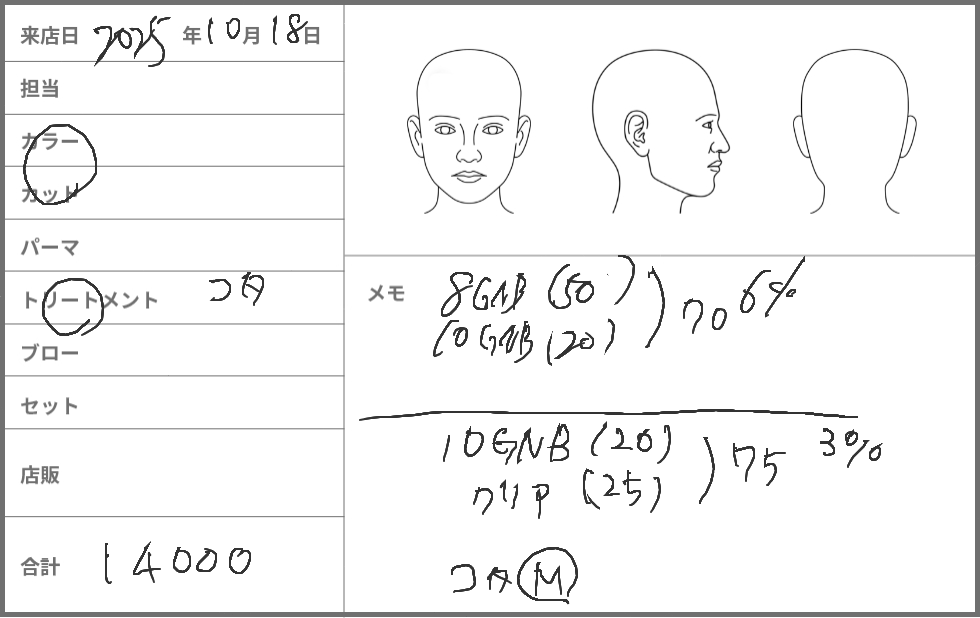 来店日 2025 年 10 月 18 日
担当
カラー
カット
パーマ
トリートメント コタ
ブロー
セット
店販
合計 14000
メモ
8GNB (50) ) 70 6%
10GNB (20)
10GNB (20) ) 75 3%
クリア (25)
コタ M